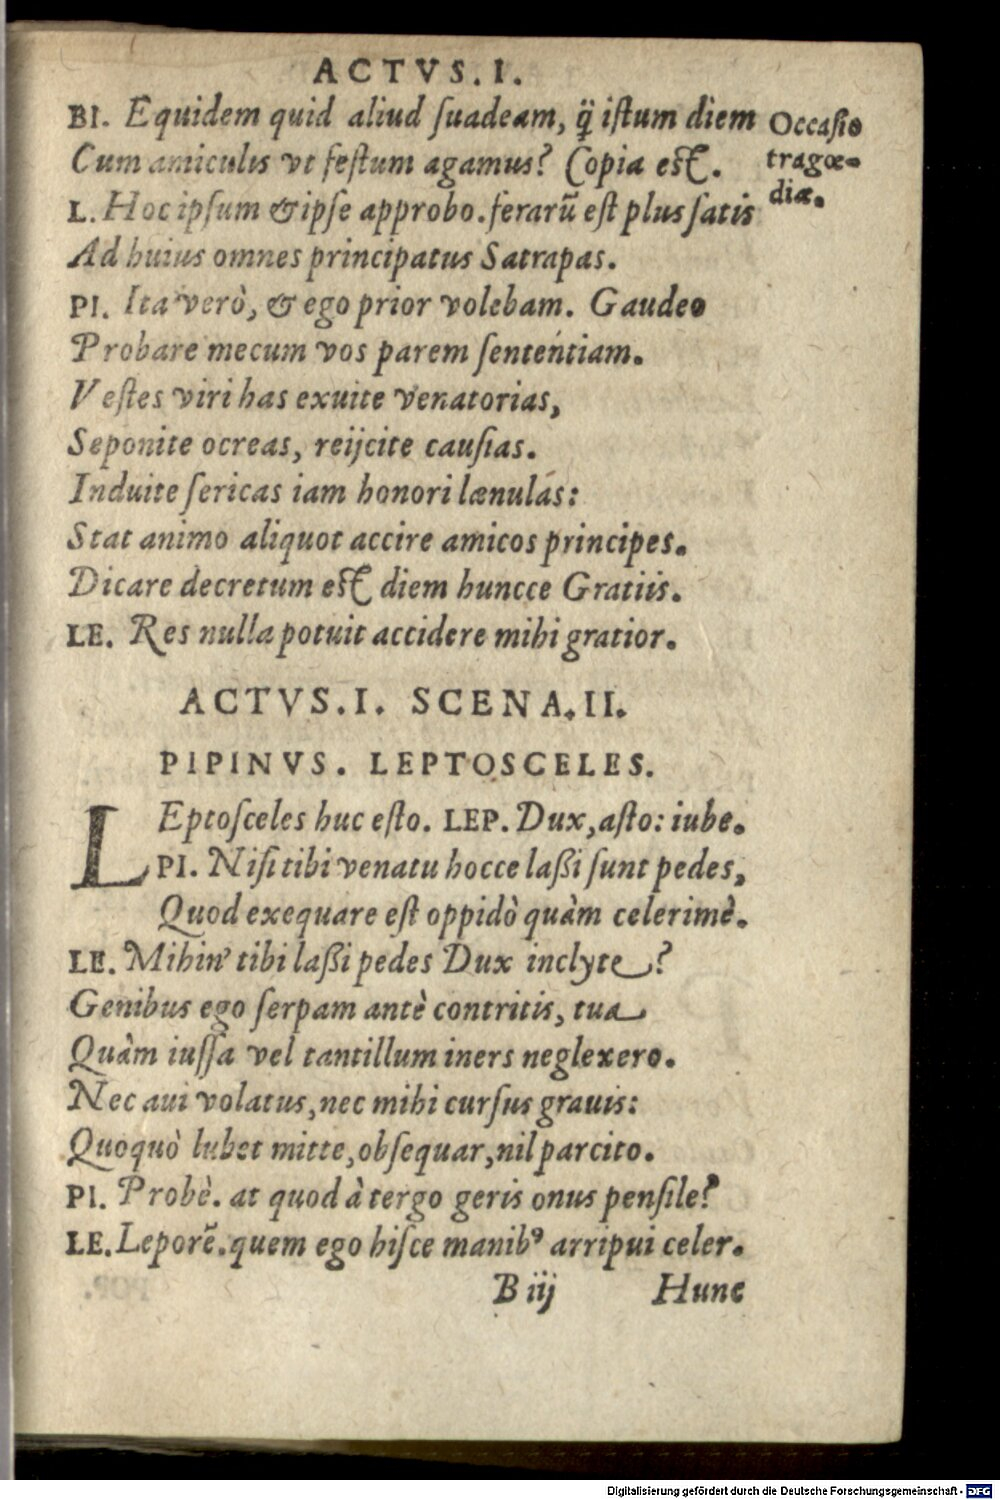 ACTVS. I.
BI. Equidem quid aliud ſuadeam, q̃ iſtum diem
Cum amiculis vt feſtum agamus? Copia eſt.
L. Hoc ipſum & ipſe approbo. ferarũ eſt plus ſatis
Ad huius omnes principatus Satrapas.
PI. Ita verò, & ego prior volebam. Gaudeo
Probare mecum vos parem ſententiam.
Veſtes viri has exuite venatorias,
Seponite ocreas, reijcite cauſias.
Induite ſericas iam honori lænulas:
Stat animo aliquot accire amicos principes.
Dicare decretum eſt diem huncce Gratiis.
LE. Res nulla potuit accidere mihi gratior.
Occaſio
tragœ-
diæ.
ACTVS. I. SCENA. II.
PIPINVS. LEPTOSCELES.
LEptoſceles huc eſto. LEP. Dux, aſto: iube.
PI. Niſi tibi venatu hocce laßi ſunt pedes,
Quod exequare eſt oppidò quàm celerimè.
LE. Mihin' tibi laßi pedes Dux inclyte?
Genibus ego ſerpam antè contritis, tua
Quàm iuſſa vel tantillum iners neglexero.
Nec aui volatus, nec mihi curſus grauis:
Quoquò lubet mitte, obſequar, nil parcito.
PI. Probè. at quod à tergo geris onus penſile?
LE. Leporẽ. quem ego hiſce manibꝰ arripui celer.
B iij Hunc
Digitalisierung gefördert durch die Deutsche Forschungsgemeinschaft - DFG